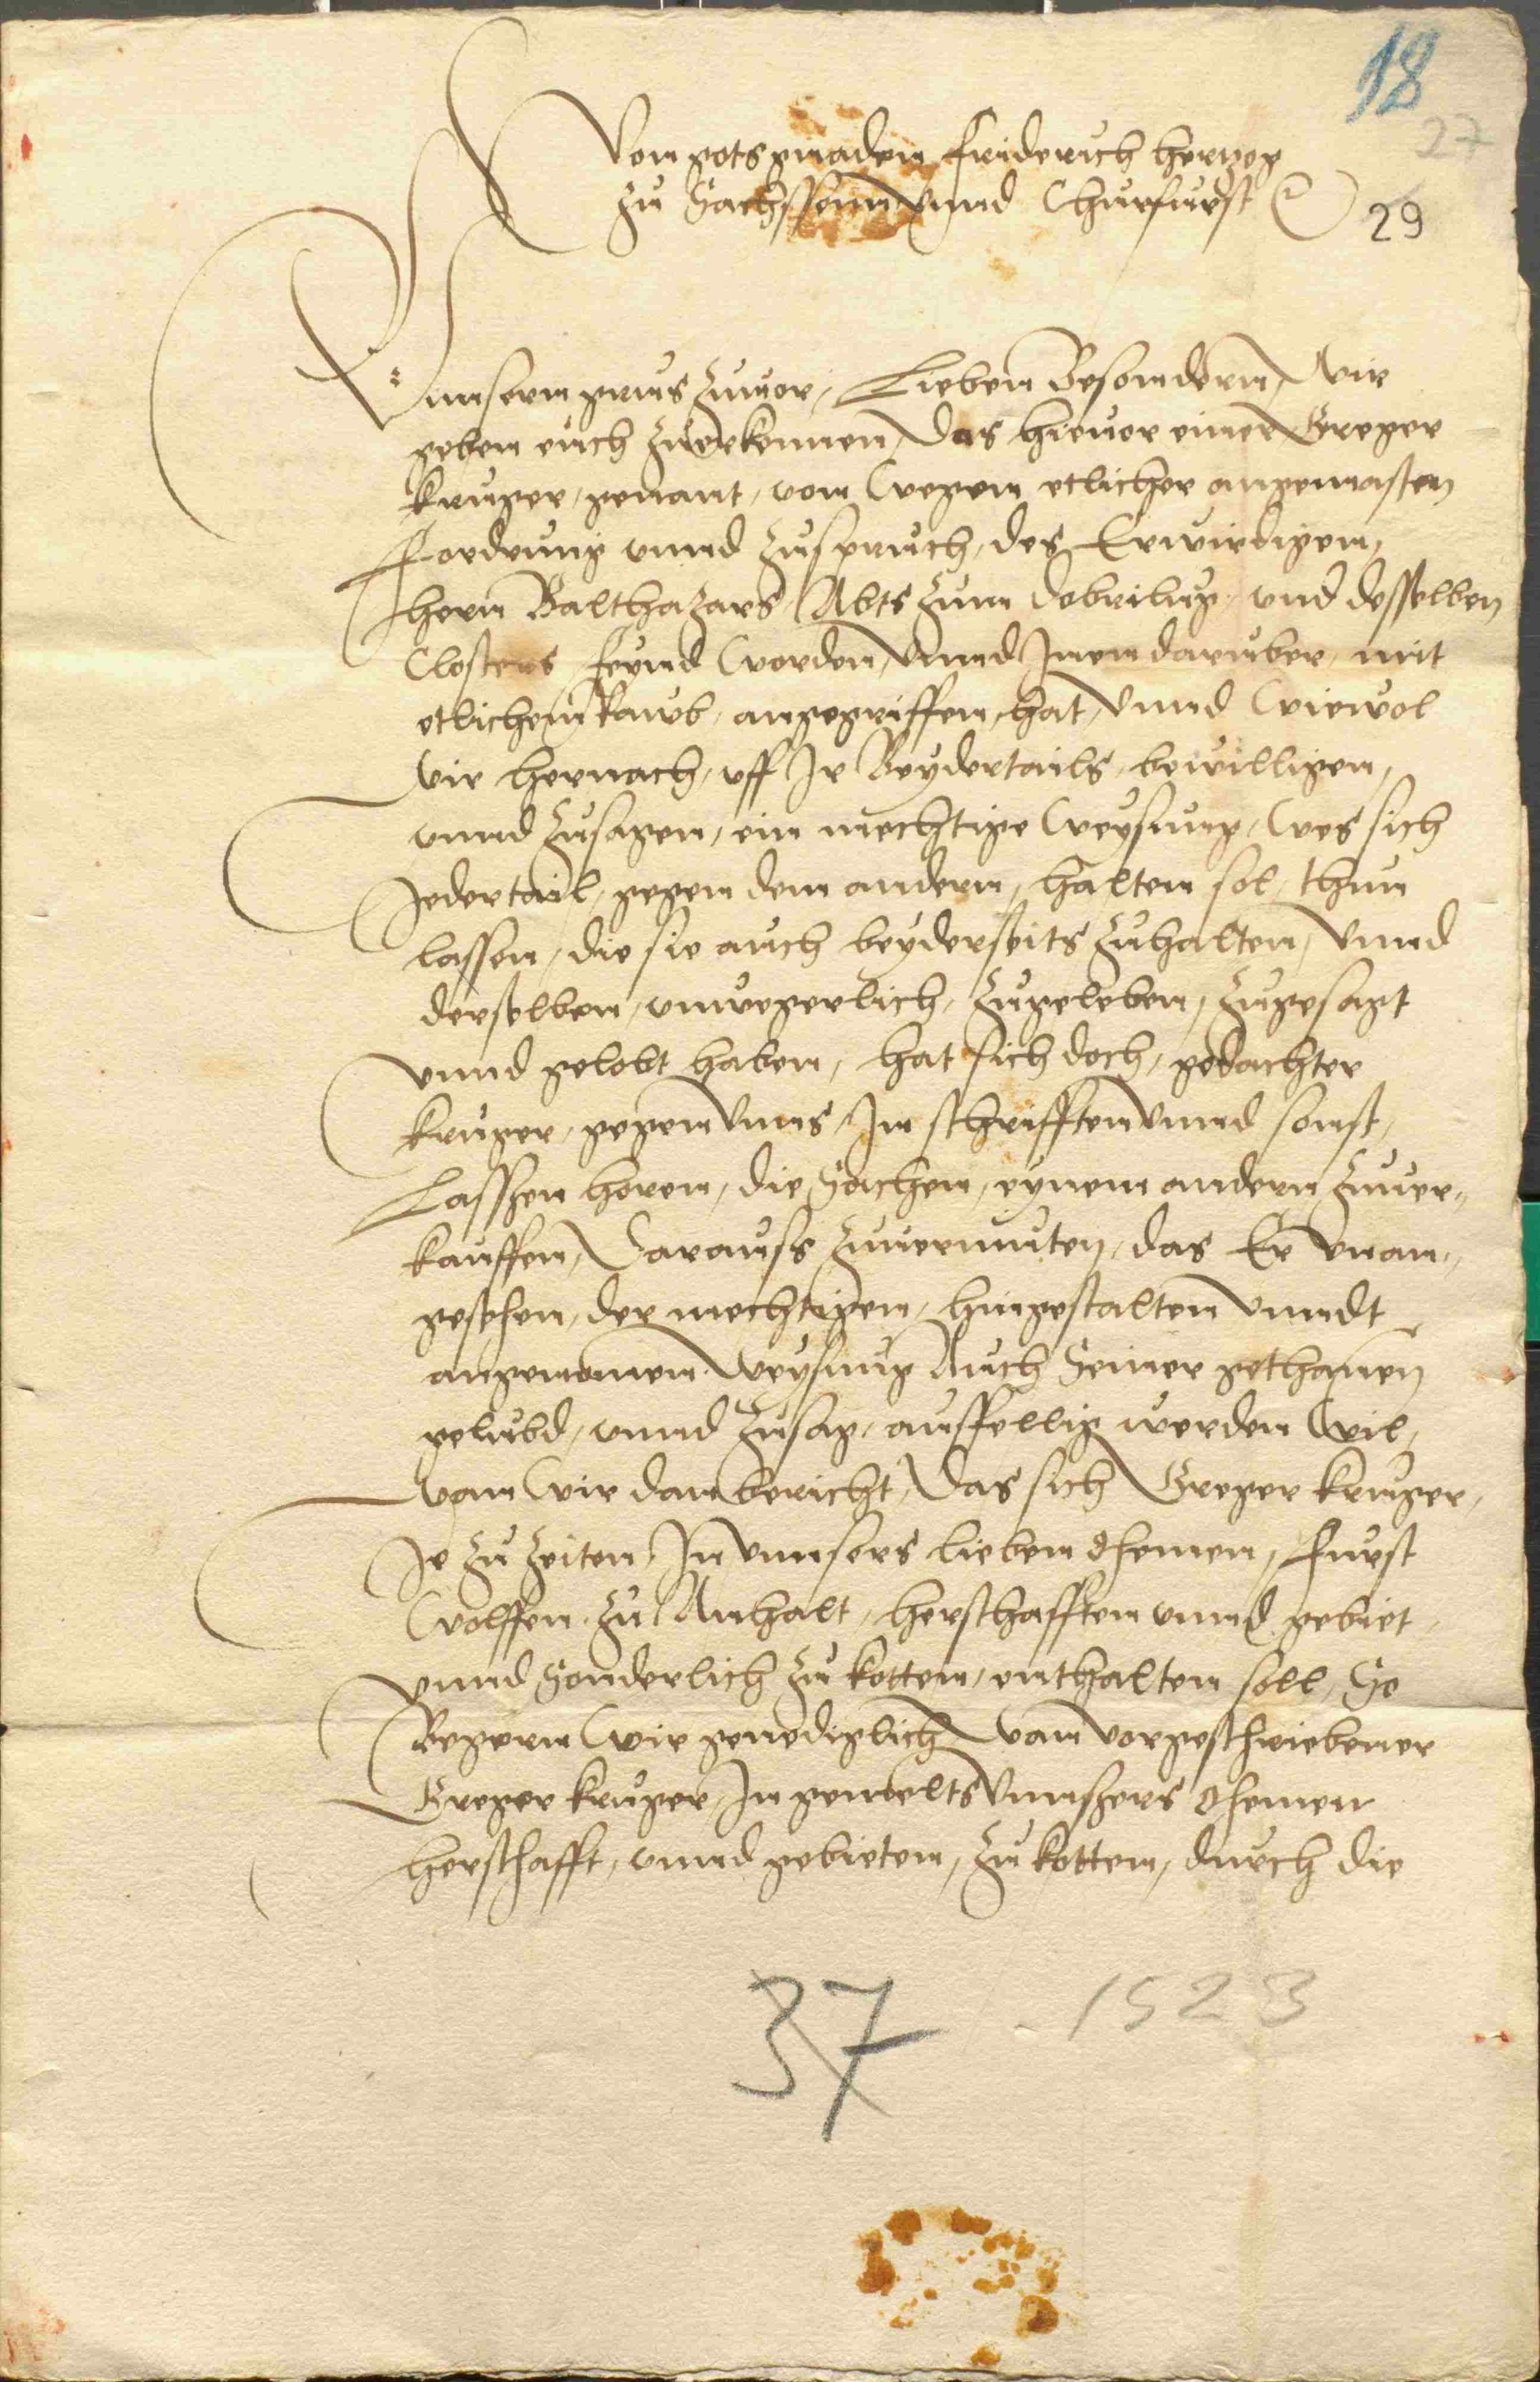 18
27
Von gots gnaden Friderich hertzog
zu Sachssenn vnnd Churfurst etc
29
Vnnsern grus zuuor, Lieben Besondern, Wir
geben euch zuerkennen, das hieuor einer Greger
kruger, genant, von wegen etlicher angemasten
Forderung vnnd zuspruch, des Erwirdigen,
hern Balthazars Abts zum dobrilug vnd desselben
Closters feynd worden, vnnd Inen daruber, mit
etlichem rawb, angegriffen, hat, vnnd wiewol
wir hernach, vff Ir Beydertails, bewilligen,
vnnd zusagen, ein mechtige weysung, wes sich
Jedertail, gegen dem andern, halten sol, thun
lassen, die sie auch beyderseits zuhalten, vnnd
derselben, vnwegerlich, zugeleben, zugesagt
vnnd gelobt haben, hat sich doch, gedachter
kruger, gegen vnns, In schrifften vnnd sonst,
Lasszen horen, die Sachen, eynem andern zuuer-
kauffen, Darauss zuuermuten, das Er vnan-
gesehen, der mechtigen, hingestalten vnndt
angenomen weysung Auch Seiner gethanen
gelubd, vnnd zusag, ausfellig werden wil,
wann wir dan bericht, Das sich Greger kruger,
Je zu zeiten, In vnnsers lieben Ohemen, Furst
wolffen zu Anhalt, herschafften vnnd gebiet
vnnd Sonderlich zu kotten, enthalten soll, So
Begern wir genediglich wan vorgeschriebener
Greger kruger, In gemelts vnnszers Ohemen
herschafft, vnnd gebieten, zu kotten, durch die
37
1523